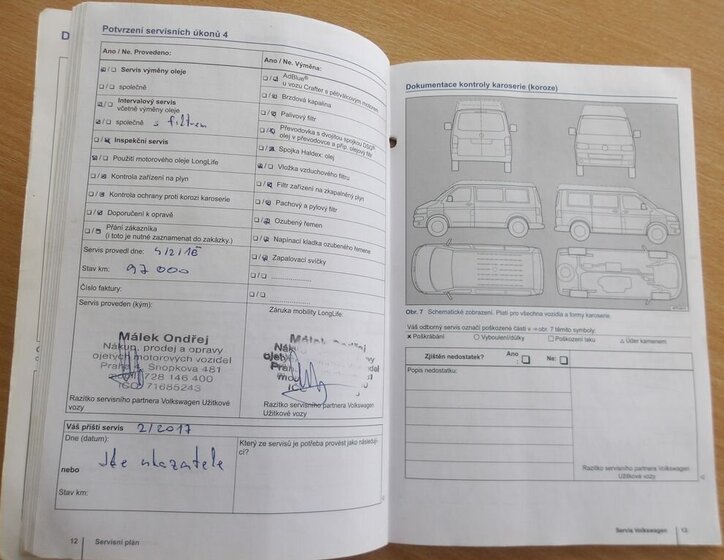 Potvrzení servisních úkonů 4
Ano / Ne. Provedeno:
Servis výměny oleje
společně
Intervalový servis
včetně výměny oleje
společně s filtrem
Inspekční servis
Použití motorového oleje LongLife
Kontrola zařízení na plyn
Kontrola ochrany proti korozi karoserie
Doporučení k opravě
Přání zákazníka
(i toto je nutné zaznamenat do zakázky.)
Servis provedl dne:
Stav km: 97 000
Číslo faktury:
Servis proveden (kým):
Málek Ondřej
Nákup, prodej a opravy
ojetých motorových vozidel
Praha 4, Snopkova 481
728 146 400
IČO 71685243
Razítko servisního partnera Volkswagen Užitkové
vozy
Ano / Ne. Výměna:
AdBlue®
u vozu Crafter s pětiválcovým motorem
Brzdová kapalina
Palivový filtr
Převodovka s dvojitou spojkou DSG®
olej v převodovce a příp. olejový filtr
Spojka Haldex: olej
Vložka vzduchového filtru
Filtr zařízení na zkapalněný plyn
Pachový a pylový filtr
Ozubený řemen
Napínací kladka ozubeného řemene
Zapalovací svíčky
Záruka mobility LongLife:
Razítko servisního partnera Volkswagen Užitkové
vozy
Váš příští servis 2/2017
Dne (datum):
nebo
Stav km:
Který ze servisů je potřeba provést jako následují-
cí?
12 Servisní plán
Dokumentace kontroly karoserie (koroze)
Obr. 7 Schematické zobrazení. Platí pro všechna vozidla a formy karoserie.
Váš odborný servis označí poškozené části v ⇒ obr. 7 těmito symboly:
× Poškrábání ○ Vyboulení/důlky □ Poškození laku △ Úder kamenem
Zjištěn nedostatek? Ano Ne:
Popis nedostatku:
Razítko servisního partnera Volkswagen
Užitkové vozy
Servis Volkswagen 13